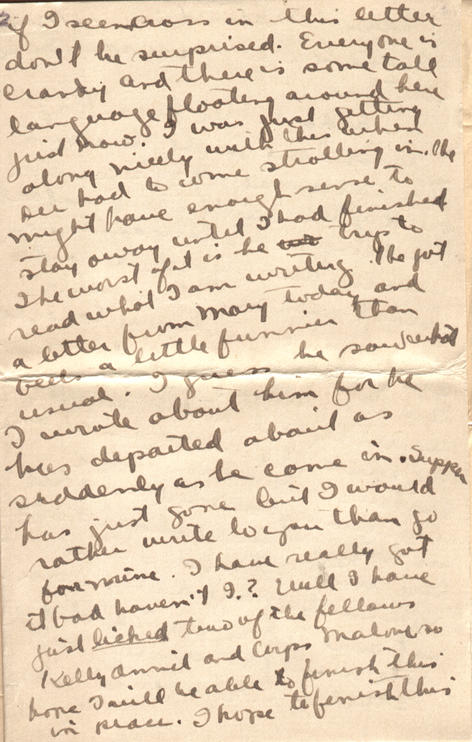 if I seem cross in this letter
don't be surprised. Everyone is
cranky and there is some tall
language floating around here
just now. I was just getting
along nicely with this when
had to come strolling in. He
might have enough sense to
stay away until I had finished
The worst of it is he trys to
read what I am writing. He got
a letter from Mary today and
feels a little funnier than
usual. I guess he saw what
I wrote about him for he
has departed about as
suddenly as he come in. Supper
has just gone but I would
rather write to you than go
for mine. I have really got
it bad haven't I.? Well I have
just licked two of the fellows
Kelly and Corps Malone, so
hope I will be able to finish this
in peace. I hope to finish this